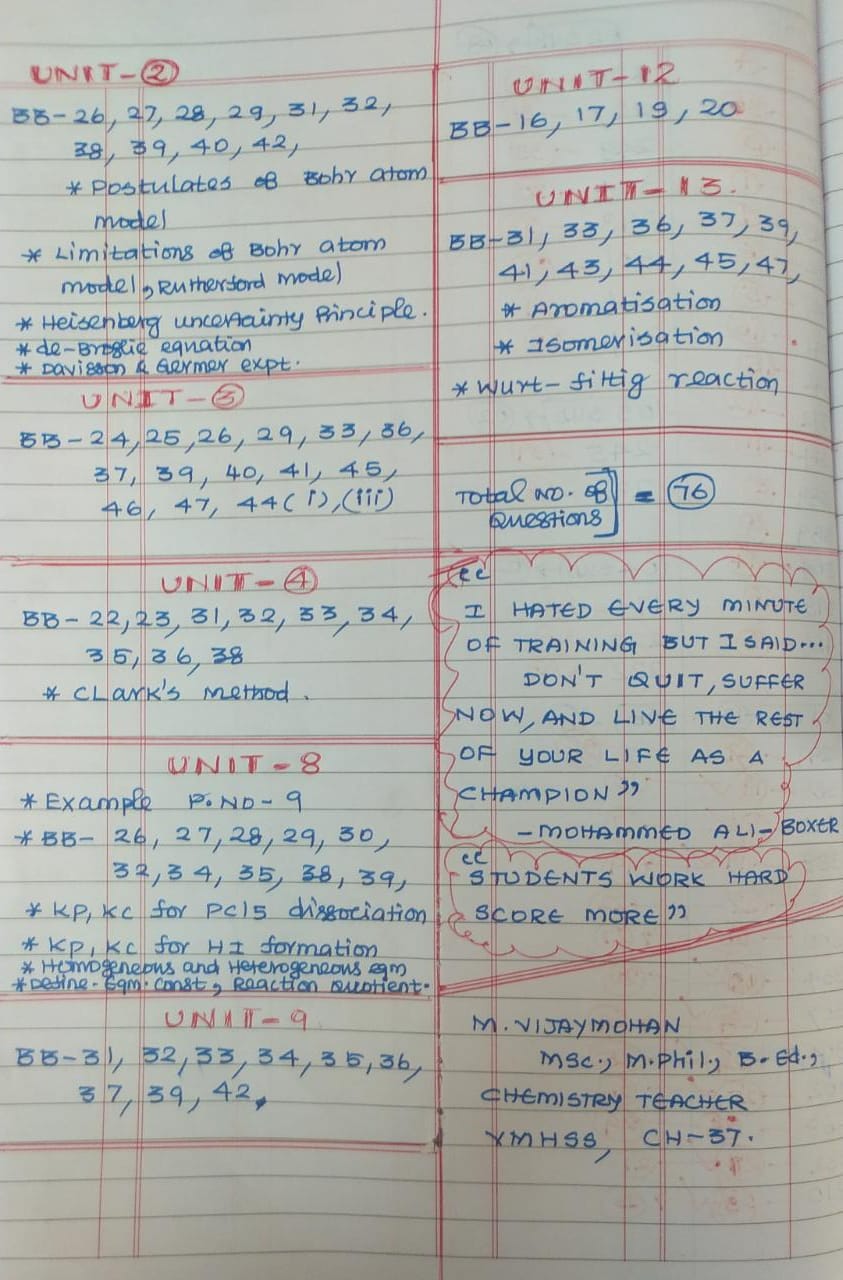 UNIT-②
BB-26, 27, 28, 29, 31, 32,
38, 39, 40, 42,
* Postulates of Bohr atom
model
* Limitations of Bohr atom
model, Rutherford model
* Heisenberg uncertainty Principle.
* de-Broglie equation
* Davisson & Germer expt.
UNIT-③
BB-24, 25, 26, 29, 33, 36,
37, 39, 40, 41, 45,
46, 47, 44(i), (iii)
UNIT-④
BB-22, 23, 31, 32, 33, 34,
35, 36, 38
* CLark's method.
UNIT-8
* Example P.NO-9
* BB- 26, 27, 28, 29, 30,
32, 34, 35, 38, 39,
* KP, KC for PCl5 dissociation
* KP, KC for HI formation
* Homogeneous and Heterogeneous eqm
* Define-Eqm.const, Reaction Quotient.
UNIT-9
BB-31, 32, 33, 34, 35, 36,
37, 39, 42.
UNIT-12
BB-16, 17, 19, 20
UNIT-13.
BB-31, 33, 36, 37, 39,
41, 43, 44, 45, 47,
* Aromatisation
* Isomerisation
* Wurt-fittig reaction
Total NO. of
Questions] = 76
"
I HATED EVERY MINUTE
OF TRAINING BUT I SAID...
DON'T QUIT, SUFFER
NOW, AND LIVE THE REST
OF YOUR LIFE AS A
CHAMPION"
-MOHAMMED ALI-BOXER
"
STUDENTS WORK HARD
SCORE MORE"
M. VIJAYMOHAN
MSC., M.Phil., B.Ed.,
CHEMISTRY TEACHER
YMHSS, CH-37.